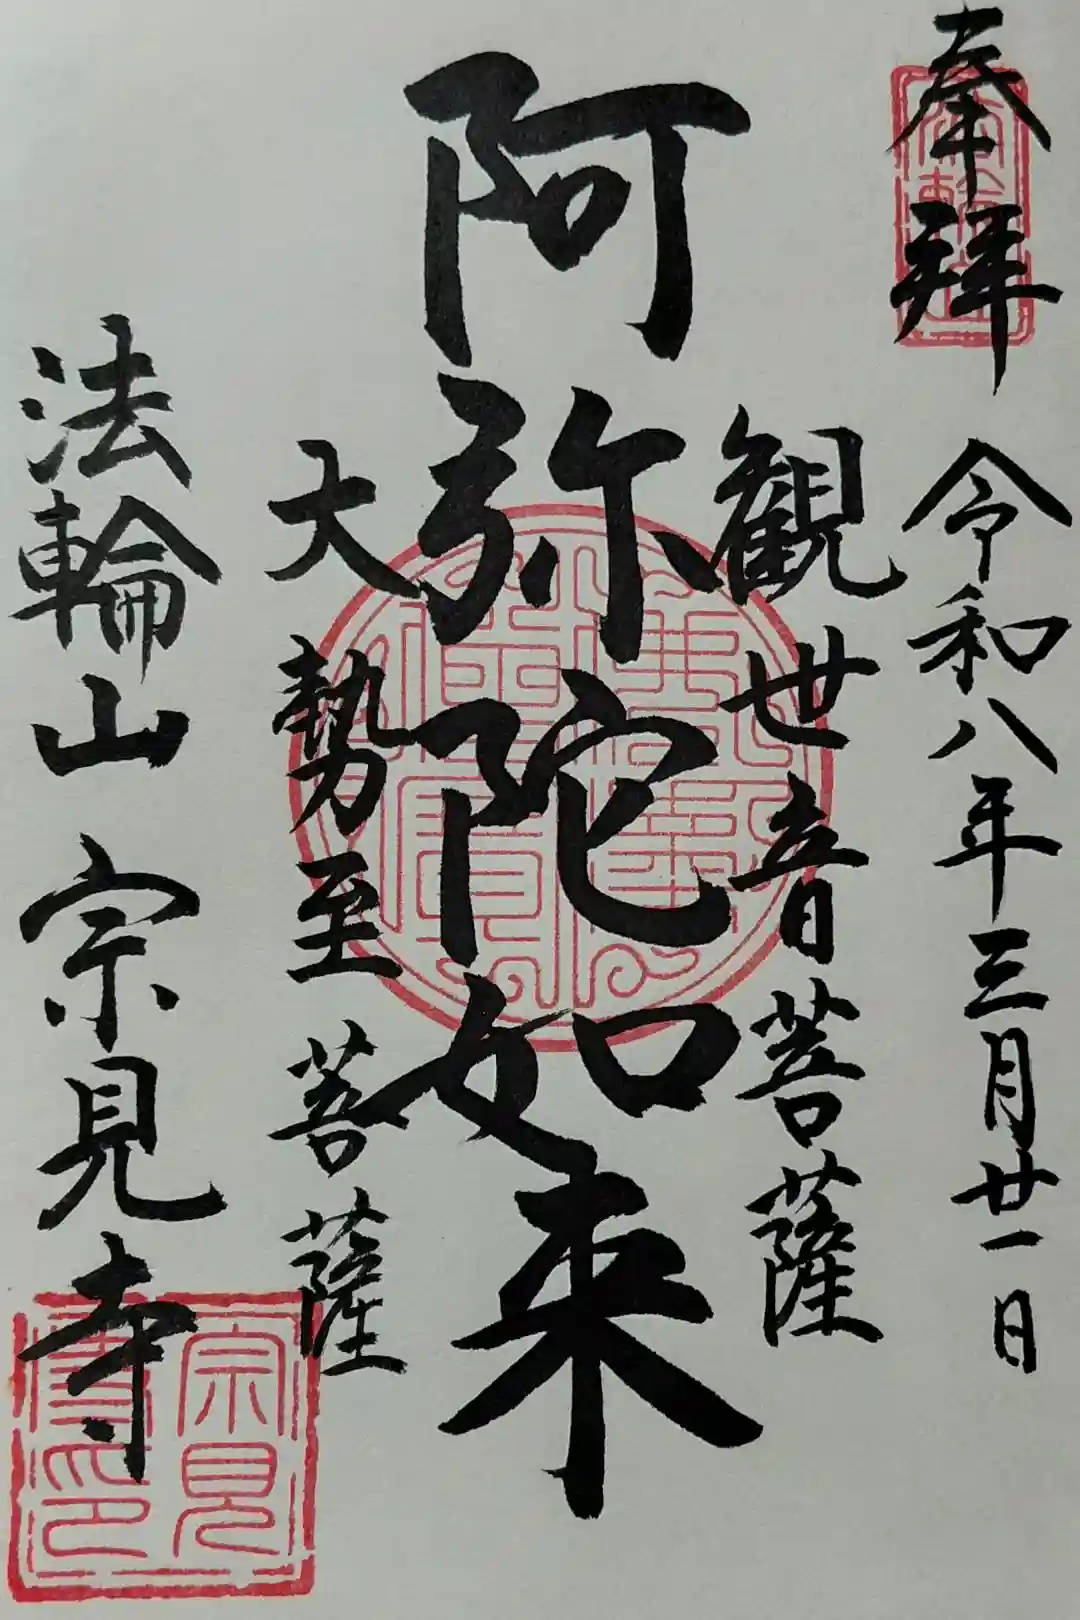 奉拝
令和八年三月廿一日
観世音菩薩
阿弥陀如来
大勢至菩薩
法輪山 宗見寺
法輪山
宗見
寺印